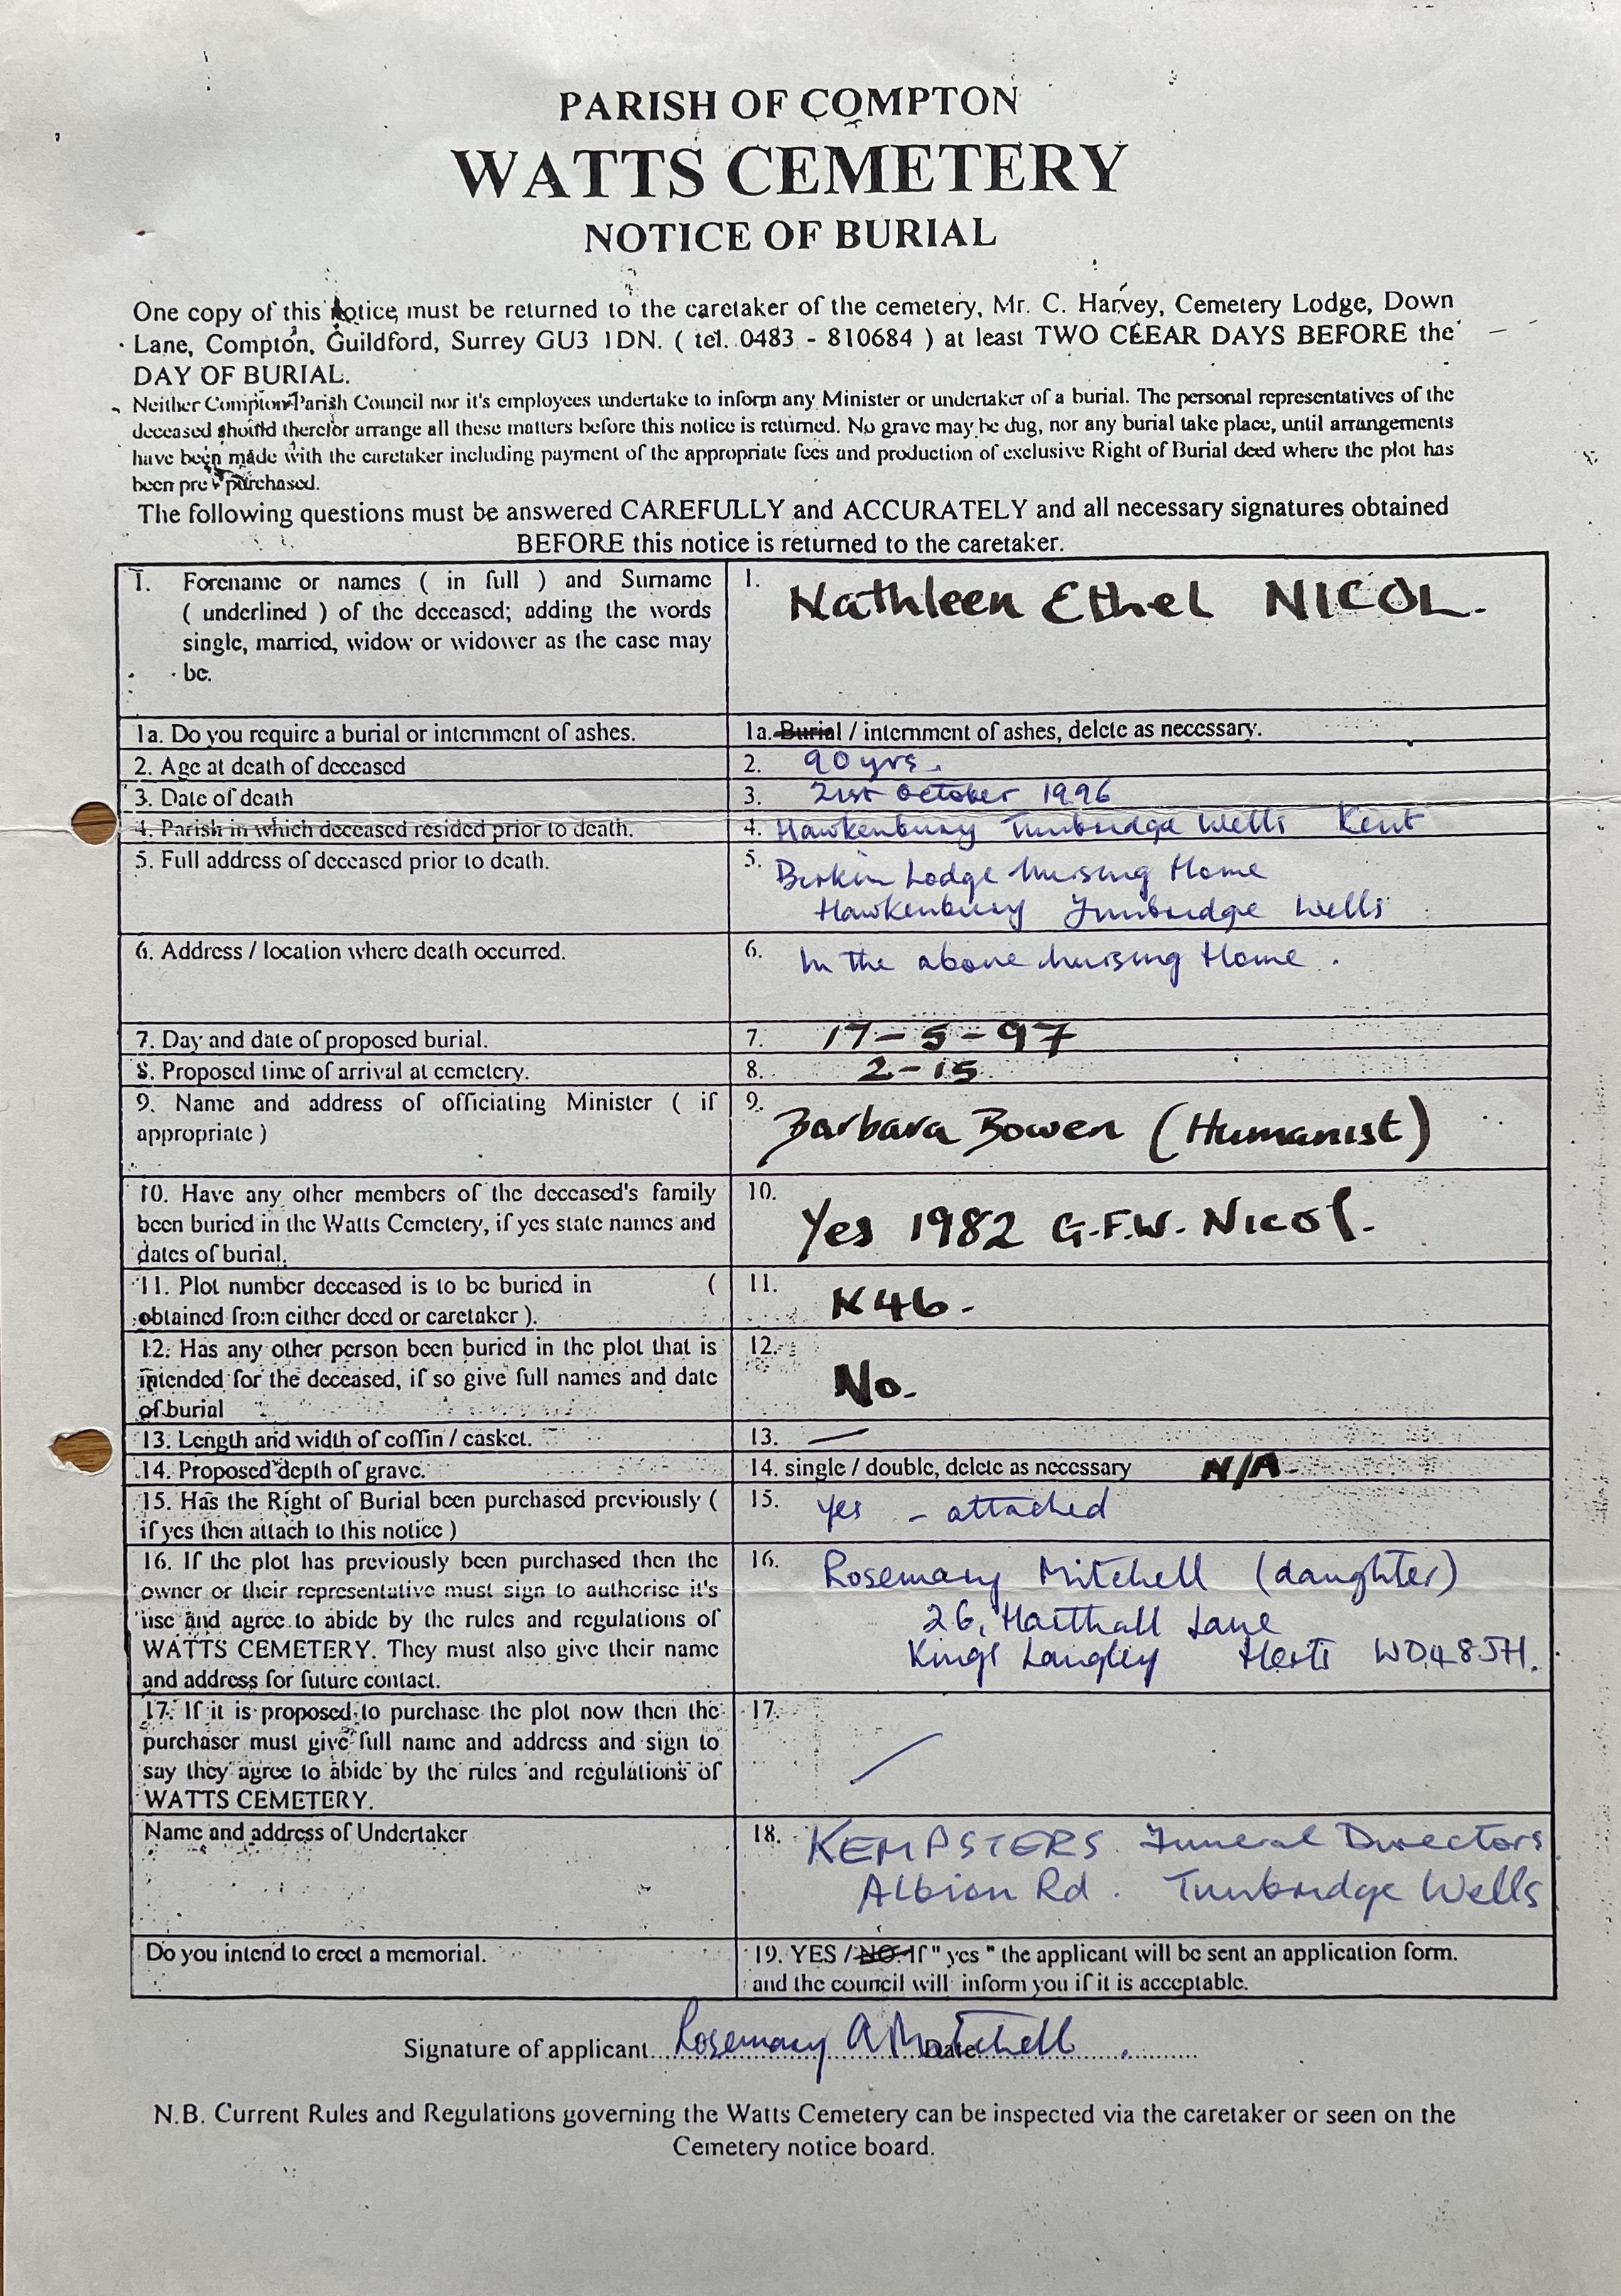 PARISH OF COMPTON
WATTS CEMETERY
NOTICE OF BURIAL
One copy of this notice must be returned to the caretaker of the cemetery, Mr. C. Harvey, Cemetery Lodge, Down
Lane, Compton, Guildford, Surrey GU3 1DN. ( tel. 0483 - 810684 ) at least TWO CLEAR DAYS BEFORE the
DAY OF BURIAL.
Neither Compton Parish Council nor it's employees undertake to inform any Minister or undertaker of a burial. The personal representatives of the
deceased should therefor arrange all these matters before this notice is returned. No grave may be dug, nor any burial take place, until arrangements
have been made with the caretaker including payment of the appropriate fees and production of exclusive Right of Burial deed where the plot has
been pre purchased.
The following questions must be answered CAREFULLY and ACCURATELY and all necessary signatures obtained
BEFORE this notice is returned to the caretaker.
1. Forename or names ( in full ) and Surname
( underlined ) of the deceased; adding the words
single, married, widow or widower as the case may
be.
1. Nathleen Ethel NICOL.
1a. Do you require a burial or internment of ashes.
1a. Burial / internment of ashes, delete as necessary.
2. Age at death of deceased
2. 90 yrs.
3. Date of death
3. 21st October 1996
4. Parish in which deceased resided prior to death.
4. Hawkenbury Tunbridge Wells Kent
5. Full address of deceased prior to death.
5. Birkin Lodge Nursing Home
Hawkenbury Tunbridge Wells
6. Address / location where death occurred.
6. In the above Nursing Home.
7. Day and date of proposed burial.
7. 17-5-97
8. Proposed time of arrival at cemetery.
8. 2-15
9. Name and address of officiating Minister ( if
appropriate )
9. Barbara Bowen (Humanist)
10. Have any other members of the deceased's family
been buried in the Watts Cemetery, if yes state names and
dates of burial.
10. Yes 1982 G.F.W. Nicol.
11. Plot number deceased is to be buried in (
obtained from either deed or caretaker ).
11. K46.
12. Has any other person been buried in the plot that is
intended for the deceased, if so give full names and date
of burial
12. No.
13. Length and width of coffin / casket.
13. —
14. Proposed depth of grave.
14. single / double, delete as necessary N/A
15. Has the Right of Burial been purchased previously (
if yes then attach to this notice )
15. yes - attached
16. If the plot has previously been purchased then the
owner or their representative must sign to authorise it's
use and agree to abide by the rules and regulations of
WATTS CEMETERY. They must also give their name
and address for future contact.
16. Rosemary Mitchell (daughter)
26, Harthall Lane
Kings Langley Herts WD4 8JH.
17. If it is proposed to purchase the plot now then the
purchaser must give full name and address and sign to
say they agree to abide by the rules and regulations of
WATTS CEMETERY.
17.
Name and address of Undertaker
18. KEMPSTERS Funeral Directors
Albion Rd. Tunbridge Wells
Do you intend to erect a memorial.
19. YES / NO. If " yes " the applicant will be sent an application form.
and the council will inform you if it is acceptable.
Signature of applicant Rosemary A Mitchell Date
N.B. Current Rules and Regulations governing the Watts Cemetery can be inspected via the caretaker or seen on the
Cemetery notice board.